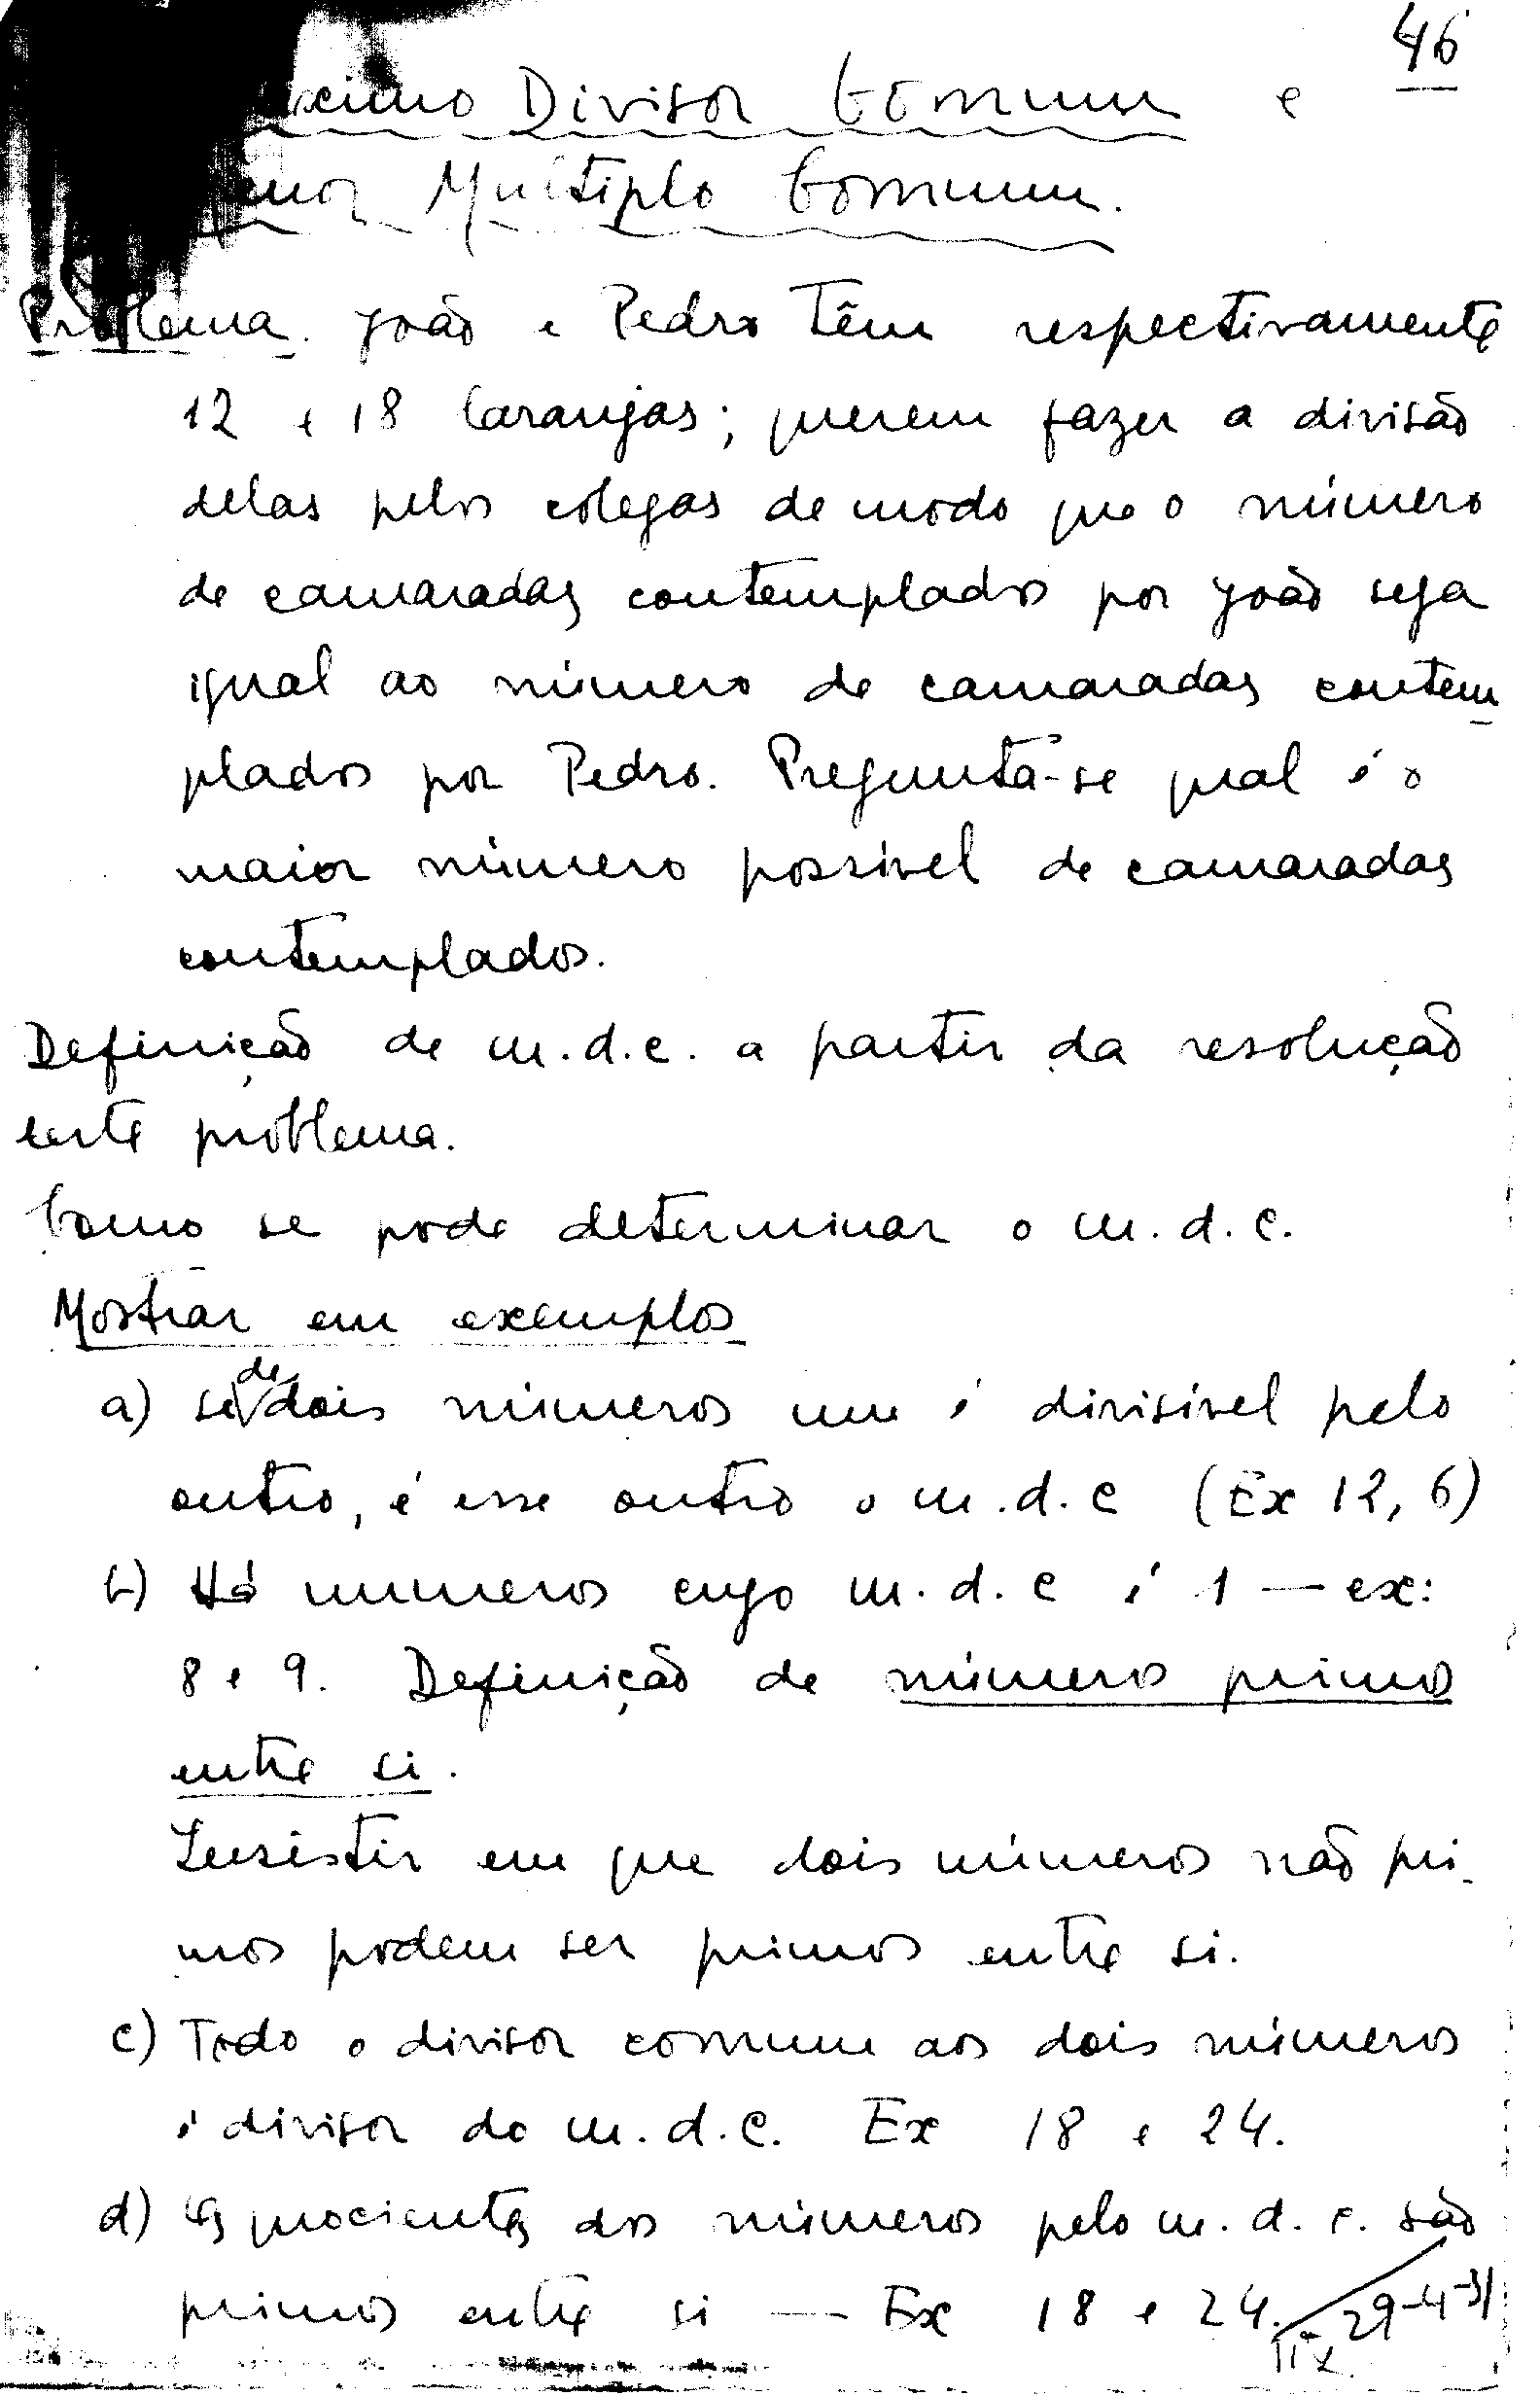 46
ximo Divisor Comum e
enor Multiplo Comum.
Problema. João e Pedro têm respectivamente
12 e 18 laranjas; querem fazer a divisão
delas pelos colegas de modo que o número
de camaradas contemplados por João seja
igual ao número de camaradas contem
plados por Pedro. Pregunta-se qual é o
maior número possivel de camaradas
contemplados.
Definição de m.d.c. a partir da resolução
deste problema.
Como se pode determinar o m.d.c.
Mostrar em exemplos
a) se de dois números um é divisível pelo
outro, é esse outro o m.d.c (Ex 12, 6)
b) Há numeros cujo m.d.c é 1 — ex:
8 e 9. Definição de números primos
entre si.
Insistir em que dois números não pri-
mos podem ser primos entre si.
c) Todo o divisor comum aos dois números
é divisor do m.d.c. Ex 18 e 24.
d) Os quocientes dos números pelo m.d.c. são
primos entre si — Ex 18 e 24. 29-4-31